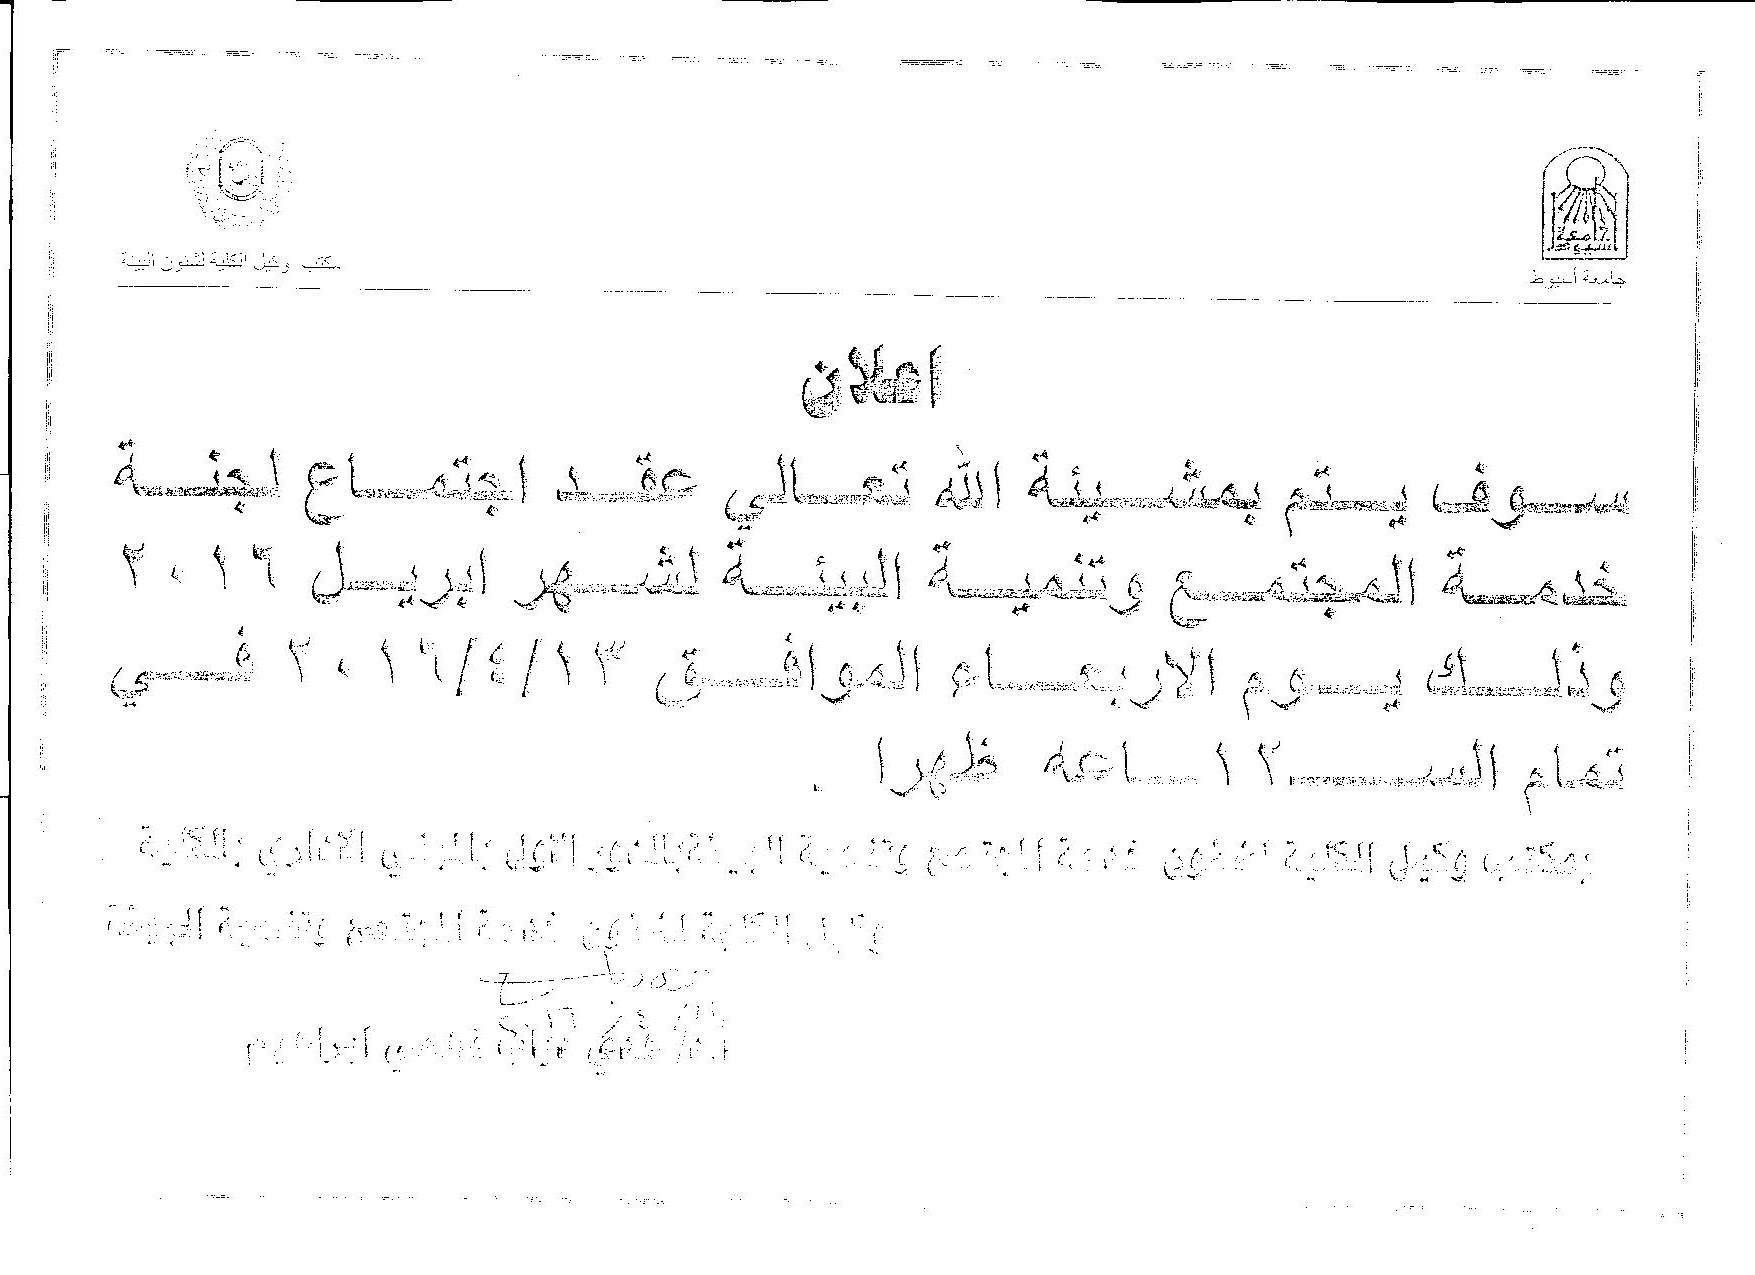 جامعة أسيوط
مكتب وكيل الكلية لشئون البيئة
اعلان
سوف يتم بمشيئة الله تعالي عقد اجتماع لجنة
خدمة المجتمع وتنمية البيئة لشهر ابريل ٢٠١٦
وذلك يوم الاربعاء الموافق ٢٠١٦/٤/١٣ في
تمام الســ١٢ـاعة ظهرا .
بمكتب وكيل الكلية لشئون خدمة المجتمع وتنمية البيئة بالدور الاول بالمبني الاداري بالكلية
وكيل الكلية لشئون خدمة المجتمع وتنمية البيئة
ابراهيم